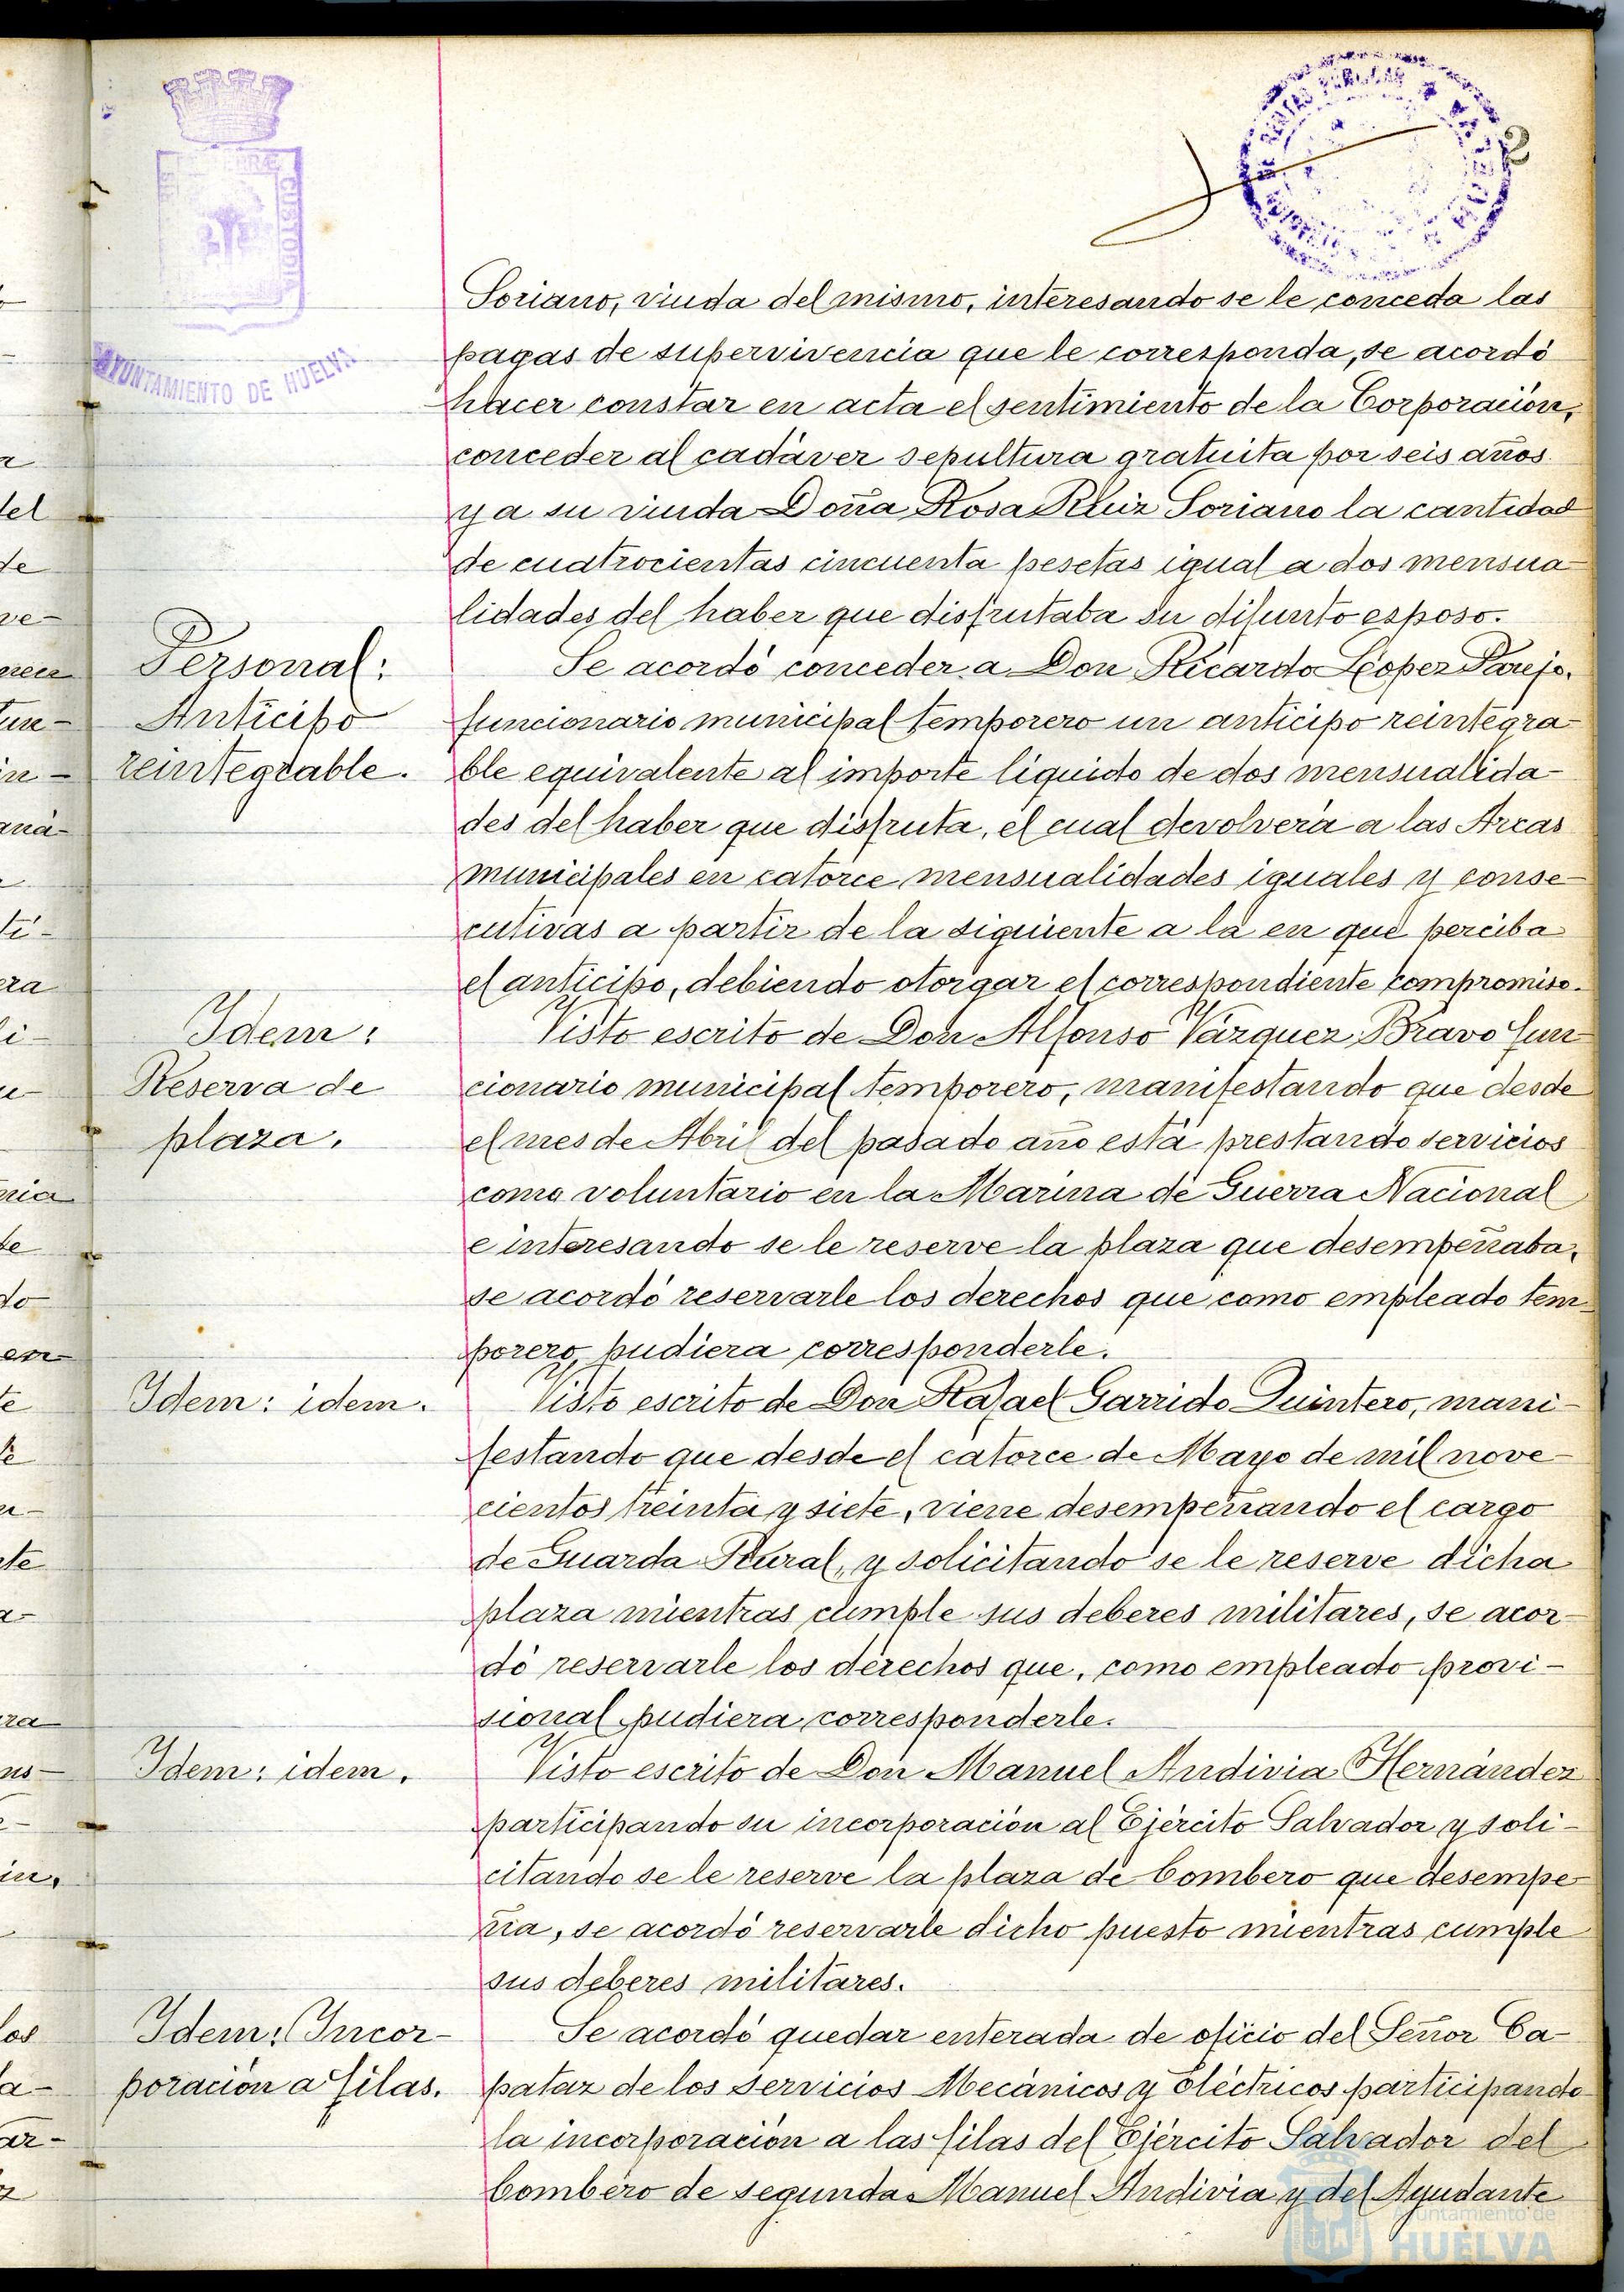 2
AYUNTAMIENTO DE HUELVA
Soriano, viuda del mismo, interesando se le conceda las
pagas de supervivencia que le corresponda, se acordó
hacer constar en acta el sentimiento de la Corporación,
conceder al cadáver sepultura gratuita por seis años
y a su viuda Doña Rosa Ruiz Soriano la cantidad
de cuatrocientas cincuenta pesetas igual a dos mensua-
lidades del haber que disfrutaba su difunto esposo.
Personal:
Anticipo
reintegrable.
Se acordó conceder a Don Ricardo López Parejo,
funcionario municipal temporero un anticipo reintegra-
ble equivalente al importe líquido de dos mensualida-
des del haber que disfruta, el cual devolverá a las Arcas
municipales en catorce mensualidades iguales y conse-
cutivas a partir de la siguiente a la en que perciba
el anticipo, debiendo otorgar el correspondiente compromiso.
Idem:
Reserva de
plaza.
Visto escrito de Don Alfonso Vázquez Bravo fun-
cionario municipal temporero, manifestando que desde
el mes de Abril del pasado año está prestando servicios
como voluntario en la Marina de Guerra Nacional
e interesando se le reserve la plaza que desempeñaba,
se acordó reservarle los derechos que como empleado tem-
porero, pudiera corresponderle.
Idem: idem.
Visto escrito de Don Rafael Garrido Quintero, mani-
festando que desde el catorce de Mayo de mil nove-
cientos treinta y siete, viene desempeñando el cargo
de Guarda Rural, y solicitando se le reserve dicha
plaza mientras cumple sus deberes militares, se acor-
dó reservarle los derechos que, como empleado provi-
sional pudiera corresponderle.
Idem: idem.
Visto escrito de Don Manuel Andivia Hernández
participando su incorporación al Ejército Salvador y soli-
citando se le reserve la plaza de bombero que desempe-
ña, se acordó reservarle dicho puesto mientras cumple
sus deberes militares.
Idem: Incor-
poración a filas.
Se acordó quedar enterada de oficio del Señor Ca-
pataz de los servicios Mecánicos y Eléctricos participando
la incorporación a las filas del Ejército Salvador del
bombero de segunda Manuel Andivia y del Ayudante
Ayuntamiento de
HUELVA